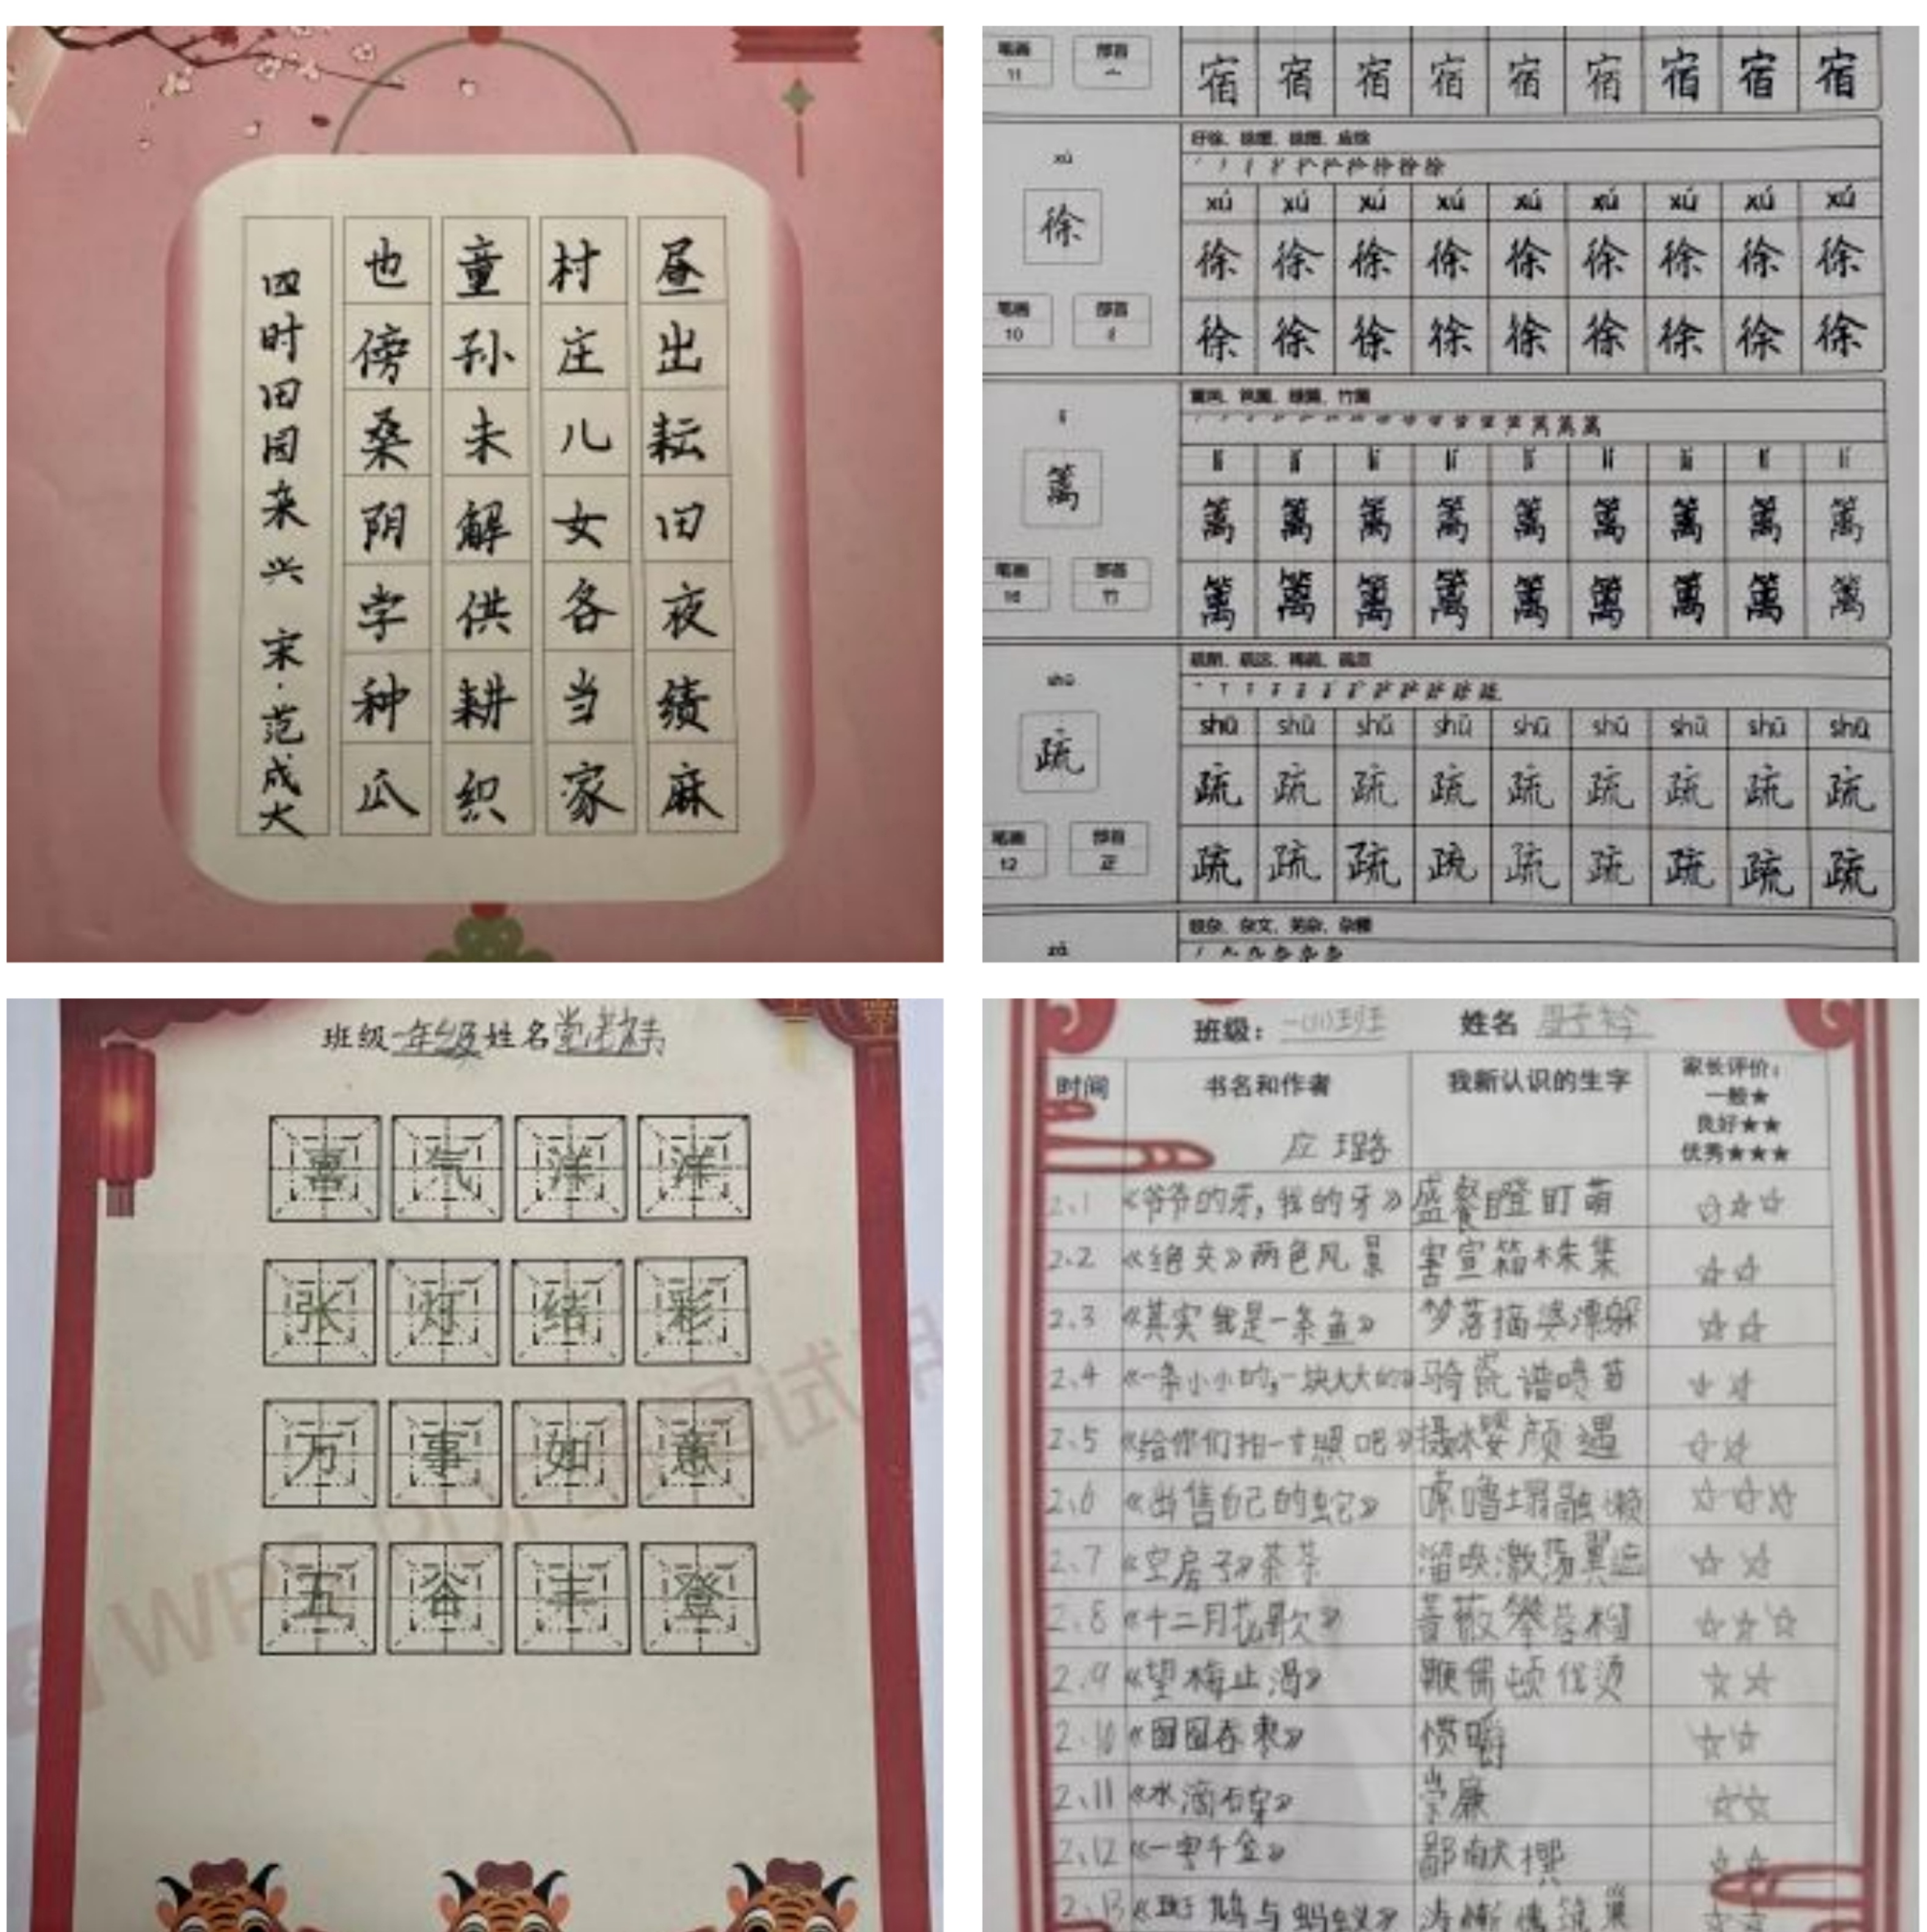 昼出耘田夜绩麻
村庄儿女各当家
童孙未解供耕织
也傍桑阴学种瓜
四时田园来兴 宋·范成大
笔画 部首
11 宀
宿 宿 宿 宿 宿 宿 宿 宿 宿
xú
徐
笔画 部首
10 彳
xú xú xú xú xú xú xú xú xú
徐 徐 徐 徐 徐 徐 徐 徐 徐
徐 徐 徐 徐 徐 徐 徐 徐 徐
篱
笔画 部首
16 竹
lí lí lí lí lí lí lí lí lí
篱 篱 篱 篱 篱 篱 篱 篱 篱
篱 篱 篱 篱 篱 篱 篱 篱 篱
shū
疏
笔画 部首
12 疋
shū shū shū shū shū shū shū shū shū
疏 疏 疏 疏 疏 疏 疏 疏 疏
疏 疏 疏 疏 疏 疏 疏 疏 疏
zá
班级 一年级 姓名
喜气洋洋
张灯结彩
万事如意
五谷丰登
班级: 姓名
时间 书名和作者 我新认识的生字 家长评价:
一般★
良好★★
优秀★★★
2.1 《爷爷的牙,我的牙》 盛餐瞪盯萌
2.2 《绝交》两色风景 害宣箱株集
2.3 《其实我是一条鱼》 梦落摘婆漂躲
2.4 《一条小小的,一块大大的》
2.5 《给你们拍一张照吧》 摄 樱颜遇
2.6 《出售自己的蛇》 嚓噜塌融懒
2.7 《空房子》茶茶
2.8 《十二月花歌》 蔷薇攀
2.9 《望梅止渴》 鞭儒顿 烫
2.10 《囫囵吞枣》 惯嚼
2.11 《水滴石穿》 崇廉
2.12 《一字千金》 鄙献
2.13 与蚂蚁》